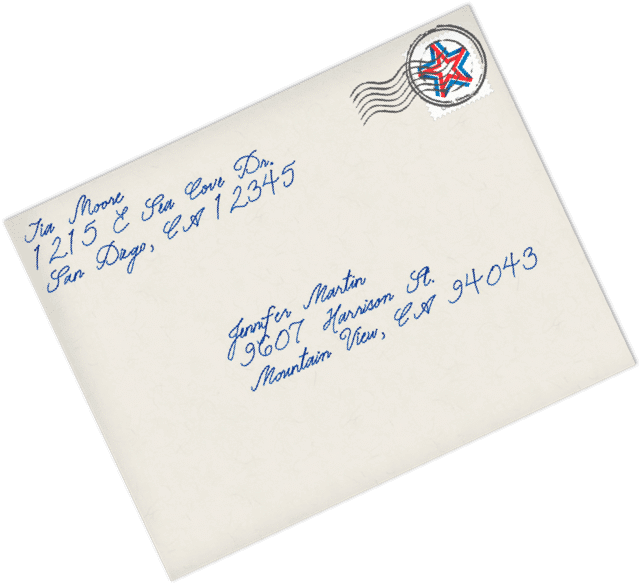 Tia Moore
1215 E Sea Cove Dr.
San Diego, CA 12345
Jennifer Martin
9607 Harrison St.
Mountain View, CA 94043